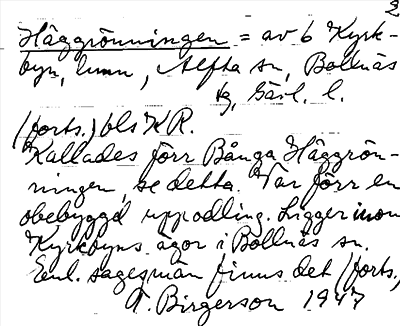 2
Häggrönningen = av b Kyrk-
byn, hmn, Alfta sn, Bollnäs
tg, Gävl. l.
(forts.) bls KR.
Kallades förr Bånga Häggrön-
ningen, se detta. Var förr en
obebyggd uppodling. Ligger inom
Kyrkbyns ägor i Bollnäs sn.
Enl. sagesmän finns det (forts.)
A. Birgerson 1947